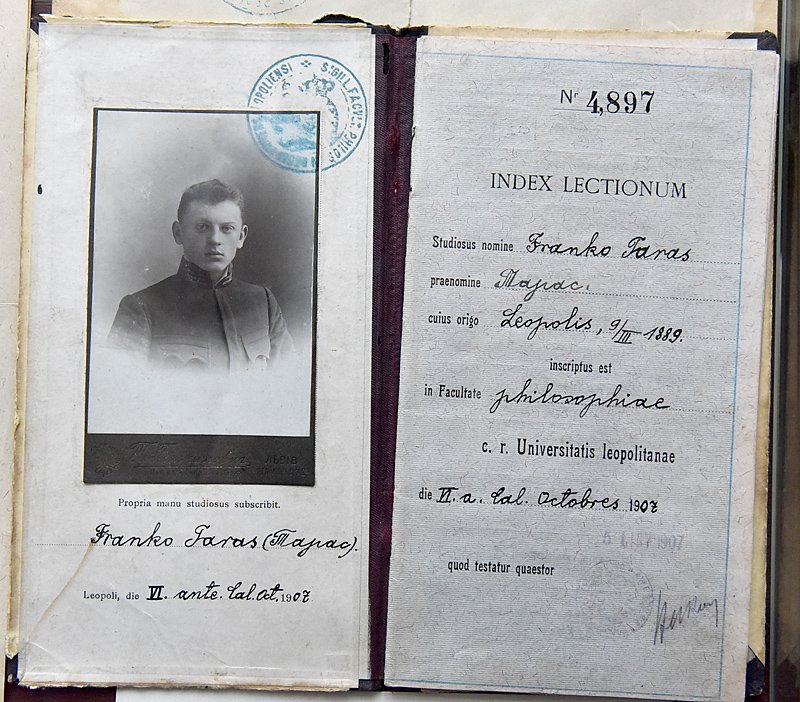 SIGILL. FACULT. PHILOS
OPOLIENSI
ЛЬВІВ
Propria manu studiosus subscribit.
Franko Taras (Тарас).
Leopoli, die VI. ante. Cal. Oct. 1907
Nr 4,897
INDEX LECTIONUM
Studiosus nomine Franko Taras
praenomine Тарас.
cuius origo Leopolis, 9/III 1889.
inscriptus est
in Facultate philosophiae
c. r. Universitatis leopolitanae
die VI. a. Cal. Octobres 1907
1907
quod testatur quaestor